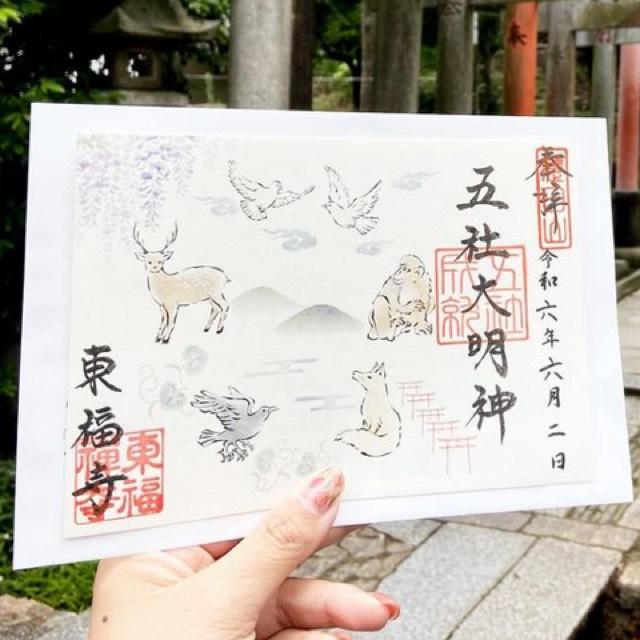 奉拝
令和六年六月二日
五社大明神
五社成就
東福寺
東福禅寺